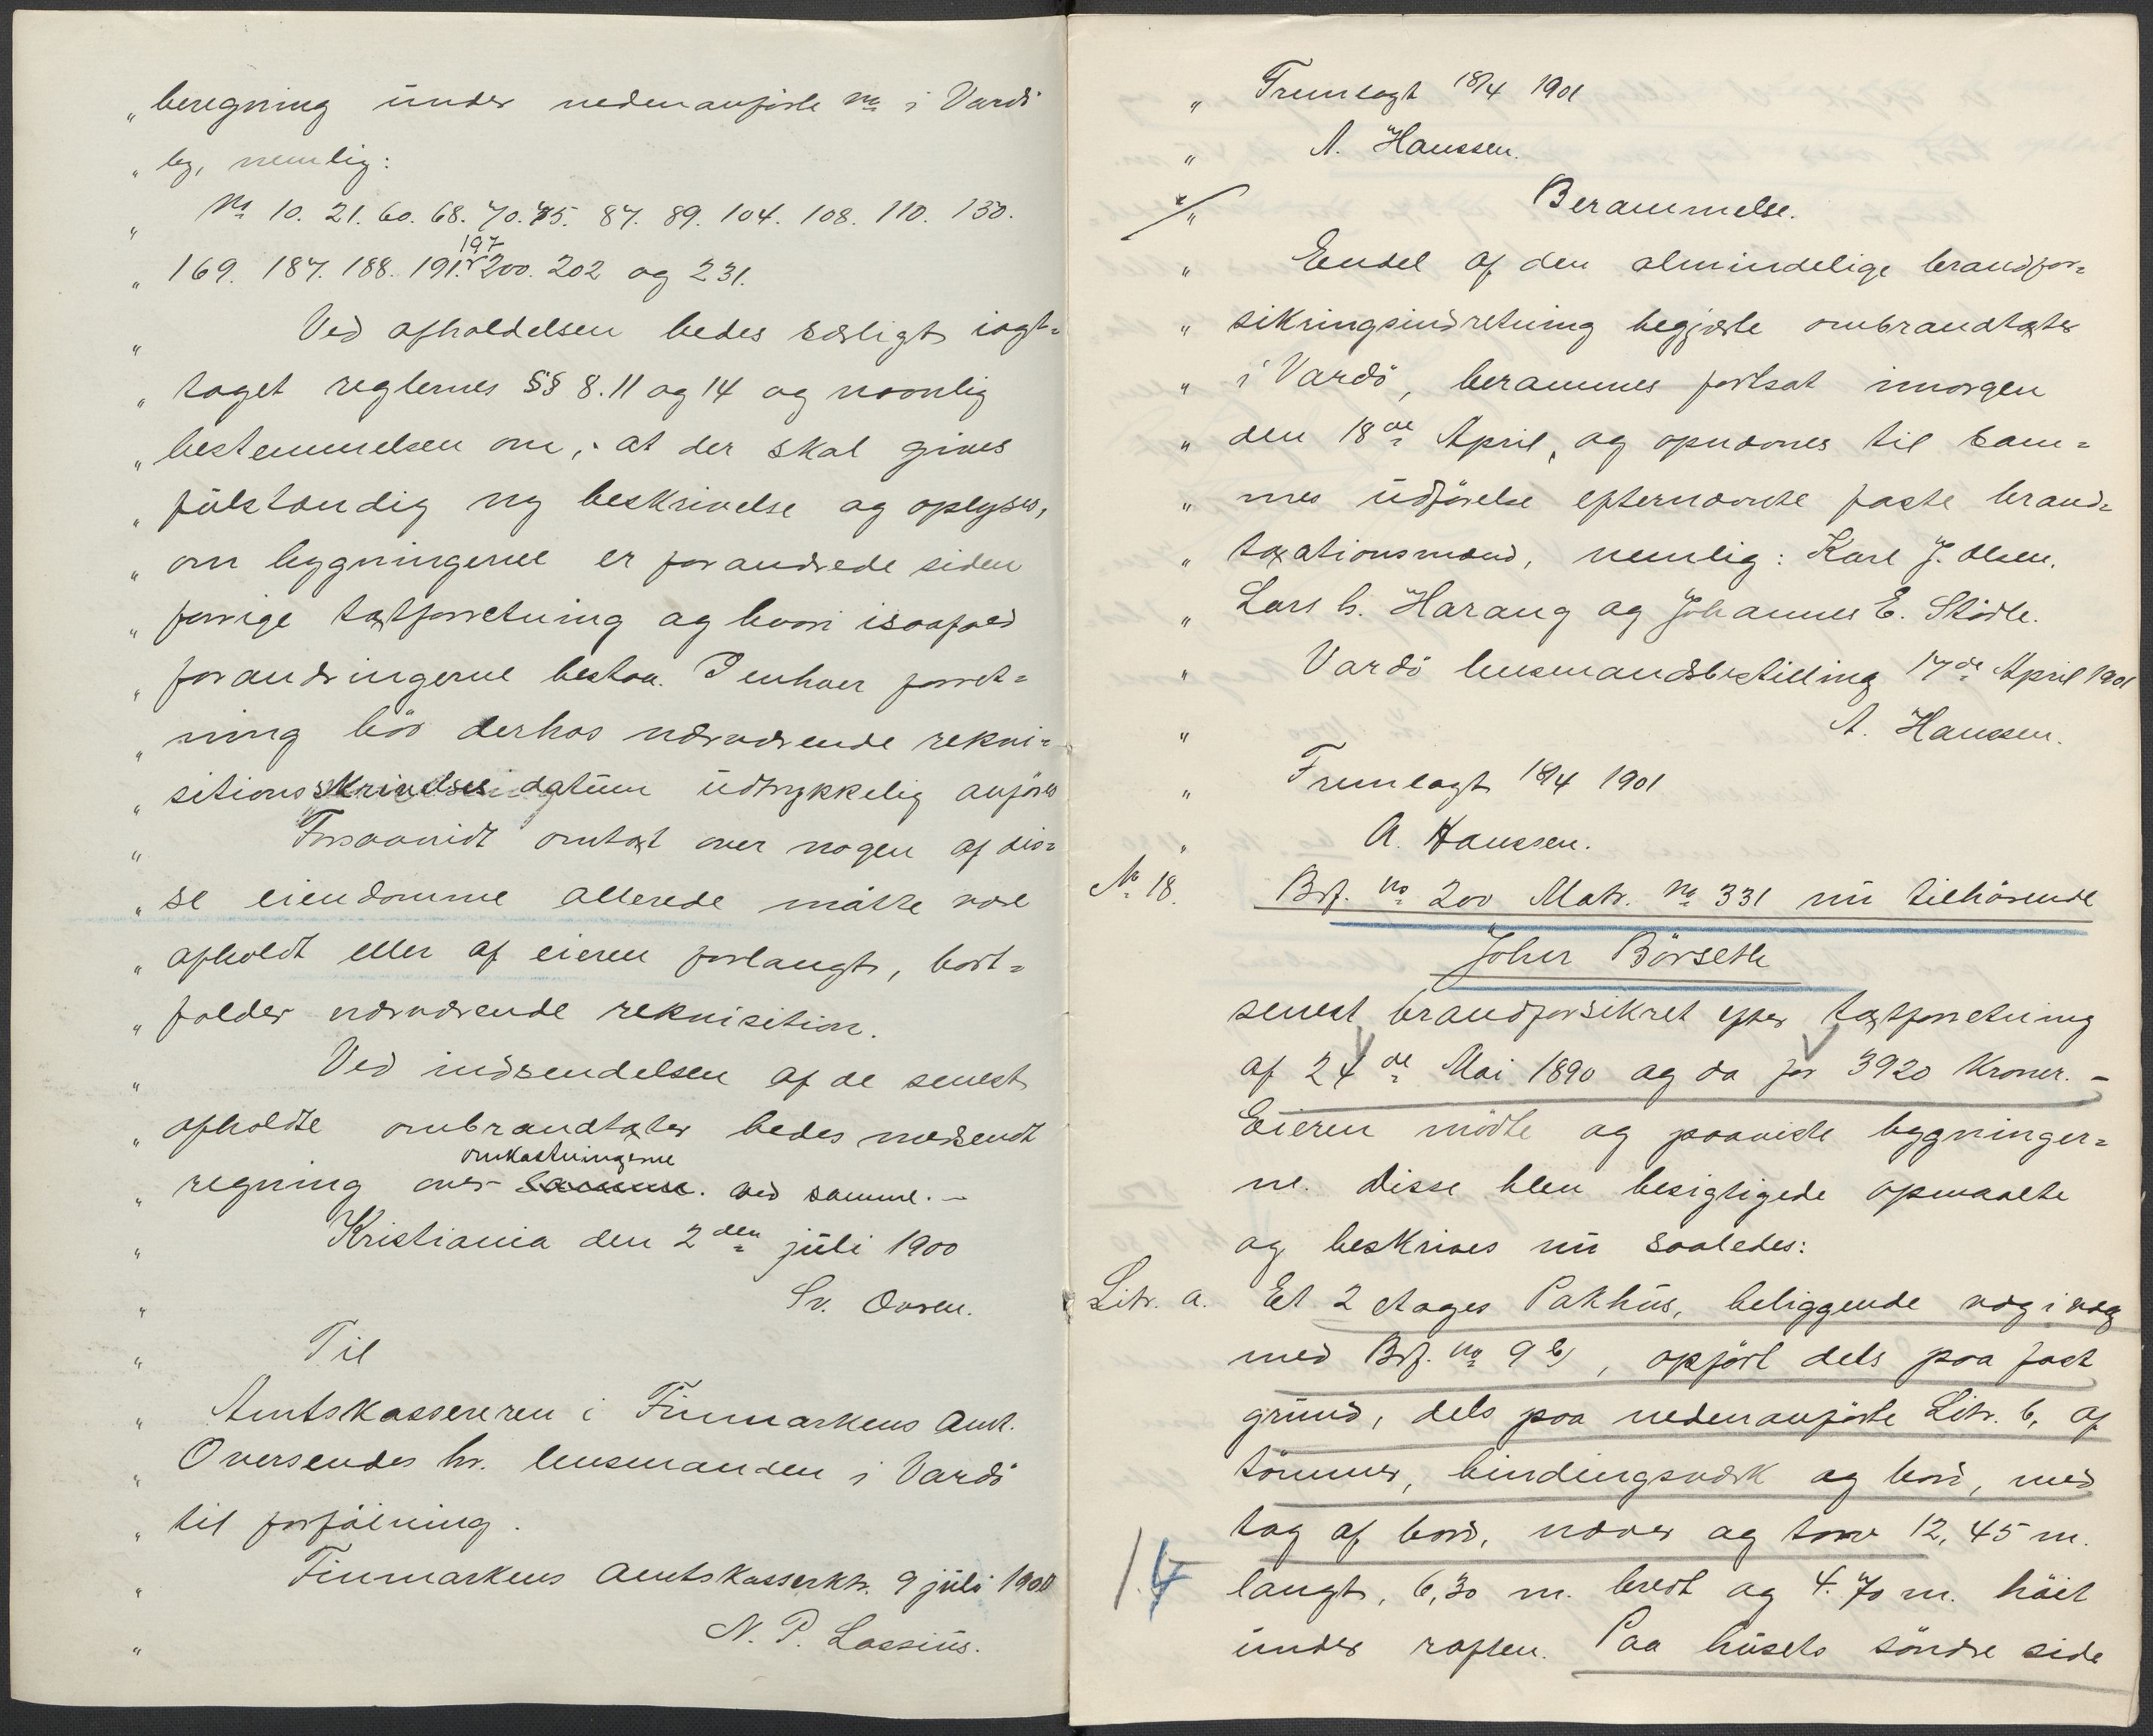 „ beregning under nedenanførte No i Vardö
„ by, nemlig:
„ No 10. 21. 60. 68. 70. 75. 87. 89. 104. 108. 110. 130.
197
„ 169. 187. 188. 191. 200. 202 og 231.
„ Ved afholdelsen bedes særligt iagt=
„ taget reglernes §§ 8. 11 og 14 og navnlig
„ bestemmelsen om, at der skal gives
„ fülstændig ny beskrivelse og oplyses,
„ om bygningerne er forandrede siden
„ forrige taxtforretning og hvori isaafald
„ forandringerne bestaa. I enhver forret=
„ ning bör derhos nærværende rekvi=
„ sitions datüm üdtrykkelig anføres
„ Forsaavidt omtaxt over nogen af dis=
„ se eiendomme allerede måtte være
„ afholdt eller af eieren forlangt, bort=
„ falder nærværende rekvisition.
„ Ved indsendelsen af de senest
„ afholdte ombrandtaxter bedes medsendt
omkostningerne
„ regning over samme. ved samme. –
„ Kristiania den 2den jüli 1900
„ Sv. Ovren.
„ Til
„ Amtskassereren i Finmarkens Amt.
„ Oversendes hr. lensmanden i Vardö
„ til forföining.
„ Finmarkens Amtskasserktr. 9 jüli 1900
„ N. P. Lossiüs.
„ Fremlagt 18/4 1901
„ A. Hanssen.
„ Berammelse.
„ Eendel af den almindelige brandfor=
„ sikringsindretning begjærte ombrandtaxter
„ i Vardö, berammes fortsat imorgen
„ den 18de April, og opnævnes til sam=
„ mes üdförelse efternævnte faste brand=
„ taxationsmænd, nemlig: Karl J. Olsen,
„ Lars h. Harang og Johannes E. Störle.
„ Vardö lensmandsbestilling 17de April 1901
„ A. Hanssen.
„ Fremlagt 18/4 1901
„ A. Hanssen.
No 18. Brf. No 200 Matr. No 331 nü tilhörende
John Börseth
senest brandforsikret efter taxtforretning
af 24de Mai 1890 og da for 3920 Kroner. –
Eieren mödte og paaviste bygninger=
ne. Disse blev besigtigede opmaalte
og beskrives nü saaledes:
Litr. a. Et 2 etages Pakhüs, beliggende væg i væg
med Brf. No 9 b), opfört dels paa fast
gründ, dels paa nedenanförte Litr. b, af
tömmer, bindingsværk og bord, med
tag af bord, næver og torv 12,45 m.
langt, 6,30 m. bredt og 4.70 m. höit
ünder raften. Paa hüsets söndre side